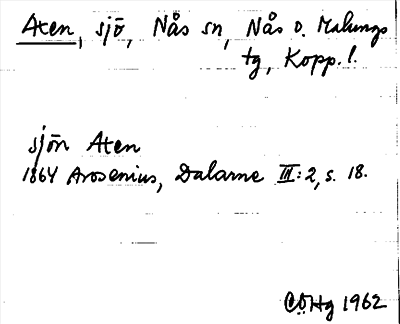 Aten, sjö, Nås sn, Nås o. Malungs
tg, Kopp. l.
sjön Aten
1864 Arosenius, Dalarne III:2, s. 18.
CÖHg 1962